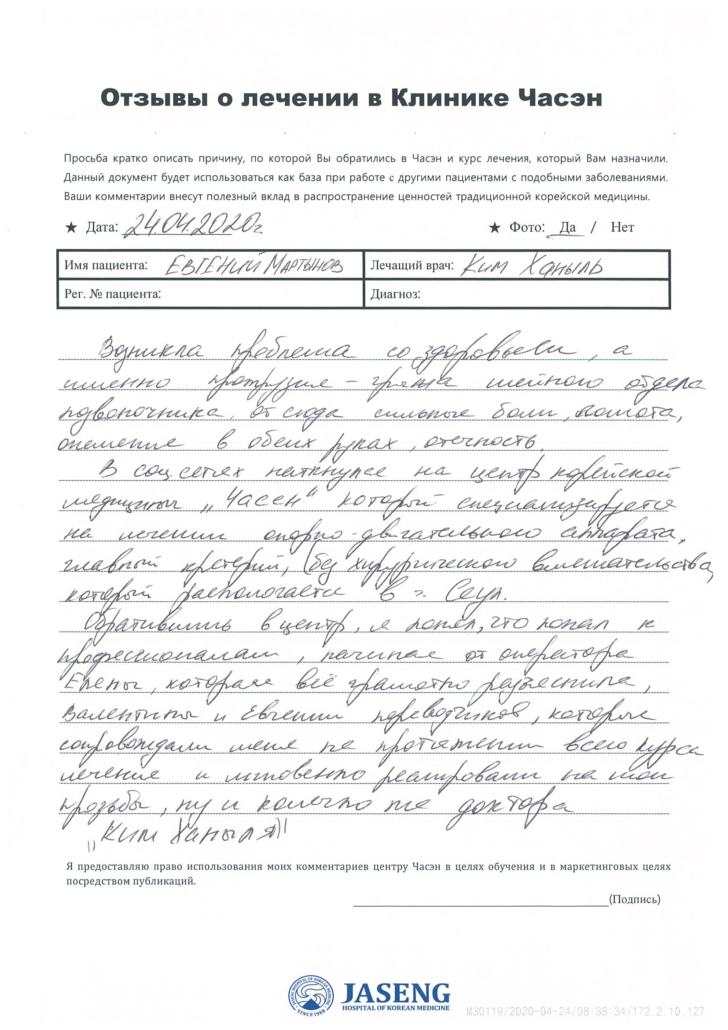 Отзывы о лечении в Клинике Часэн
Просьба кратко описать причину, по которой Вы обратились в Часэн и курс лечения, который Вам назначили.
Данный документ будет использоваться как база при работе с другими пациентами с подобными заболеваниями.
Ваши комментарии внесут полезный вклад в распространение ценностей традиционной корейской медицины.
★ Дата: 24.04.2020г. ★ Фото: Да / Нет
Имя пациента: Евгений Мартынов Лечащий врач: Ким Ханыль
Рег. № пациента: Диагноз:
Возникла проблема со здоровьем, а
именно протрузия – грыжа шейного отдела
позвоночника, от сюда сильные боли, ломота,
онемение в обеих руках, отечность,
В соц сетях наткнулся на центр корейской
медицины „Часен“ который специализируется
на лечении опорно-двигательного аппарата,
главный кретерий, (без хирургического вмешательства,
который распологается в г. Сеул.
Обратившись в центр, я понял, что попал к
профессионалам, начиная от оператора
Елены, которая всё грамотно разъяснила,
Валентины и Евгении переводчиков, которые
сопровождали меня на протяжении всего курса
лечения и мгновенно реагировали на мои
прозьбы, ну и конечно же доктора
„Ким Ханыля"!
Я предоставляю право использования моих комментариев центру Часэн в целях обучения и в маркетинговых целях
посредством публикаций.
(Подпись)
JASENG
HOSPITAL OF KOREAN MEDICINE
JASENG HOSPITAL OF KOREAN MEDICINE
SINCE 1988
M30119/2020-04-24/08:38:34/172.2.10.127